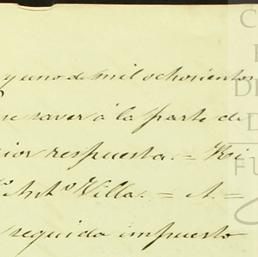 y uno de mil ochocientos
saver á la parte de
respuesta. = 
Ant.º Villa. = A =
seguida impuesto